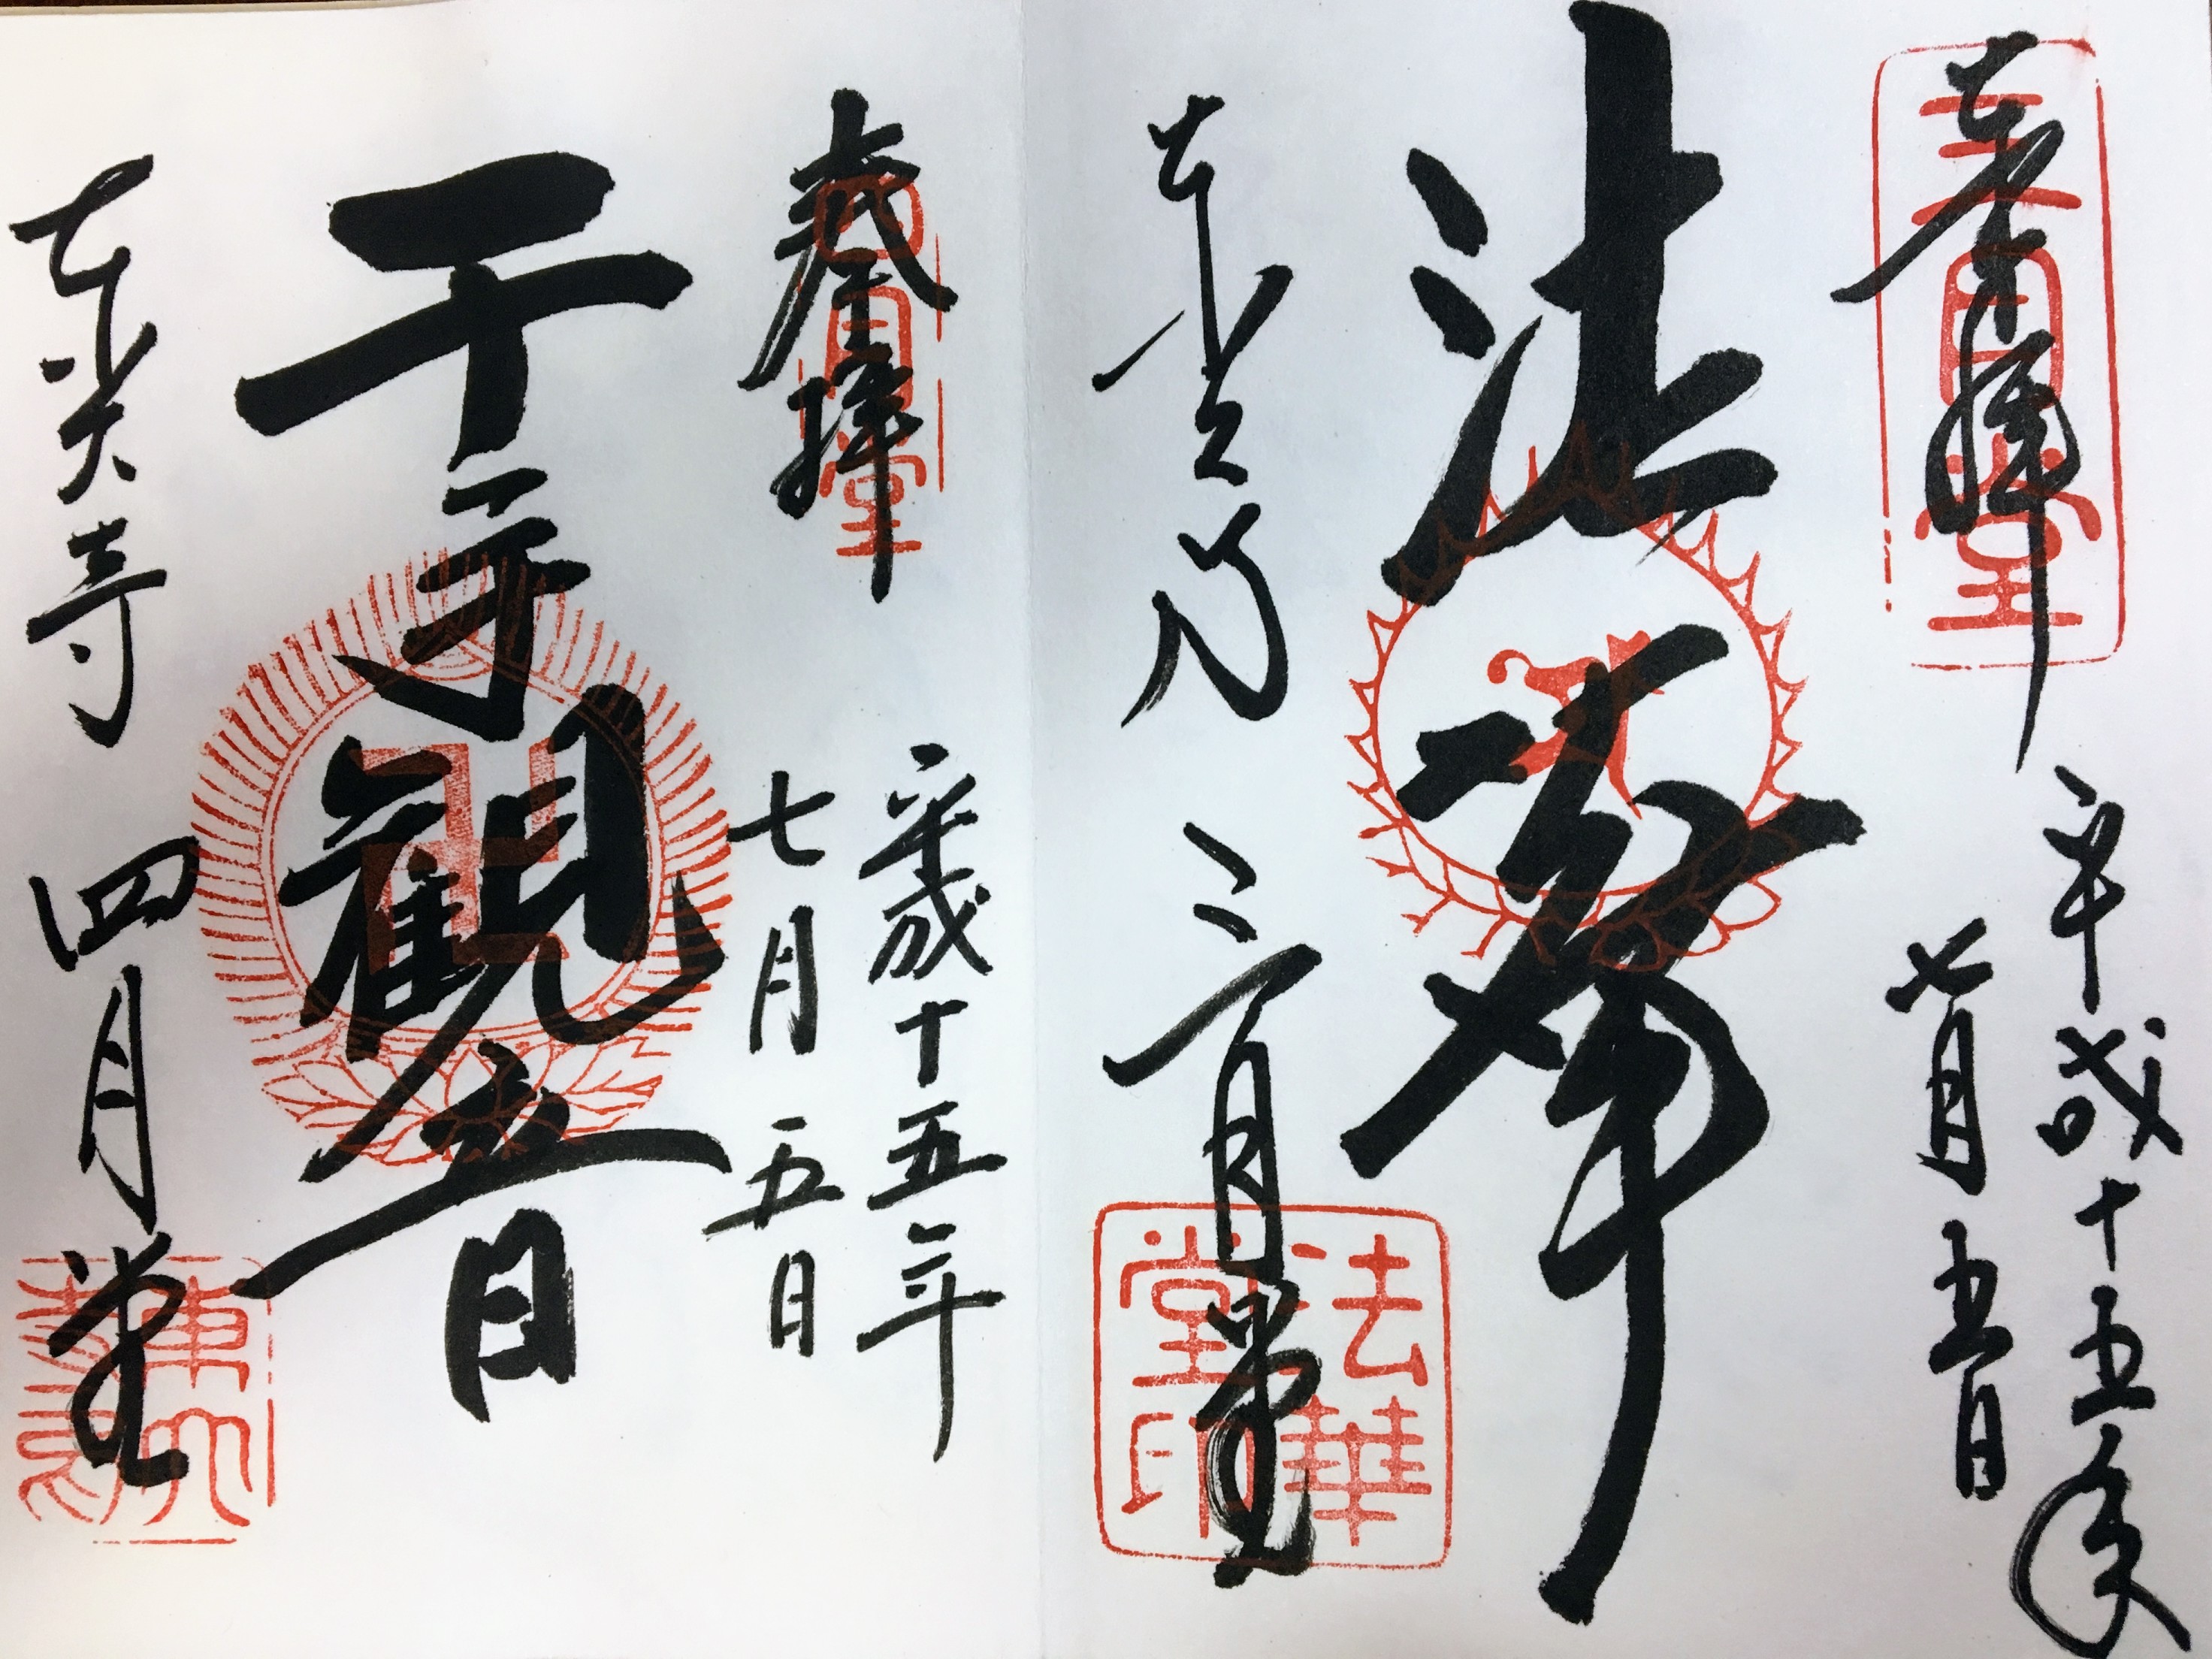 奉拝
三月堂
平成十五年
七月五日
法華
東大寺
三月堂
法華
堂印
奉拝
四月堂
平成十五年
七月五日
千手観音
東大寺
四月堂
東大